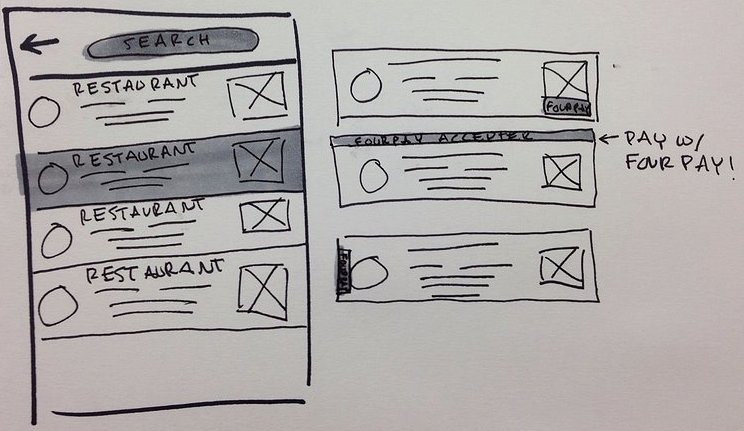 SEARCH
RESTAURANT
RESTAURANT
RESTAURANT
RESTAURANT
FOURPAY
FOURPAY ACCEPTED
← PAY W/
FOUR PAY!